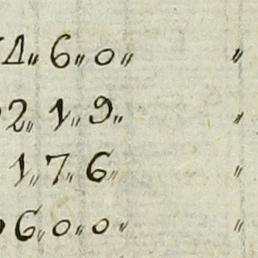 4〃 6〃 0〃 〃
2〃 1〃 9〃 〃
1〃 7〃 6〃 〃
6〃 0〃 0〃 〃